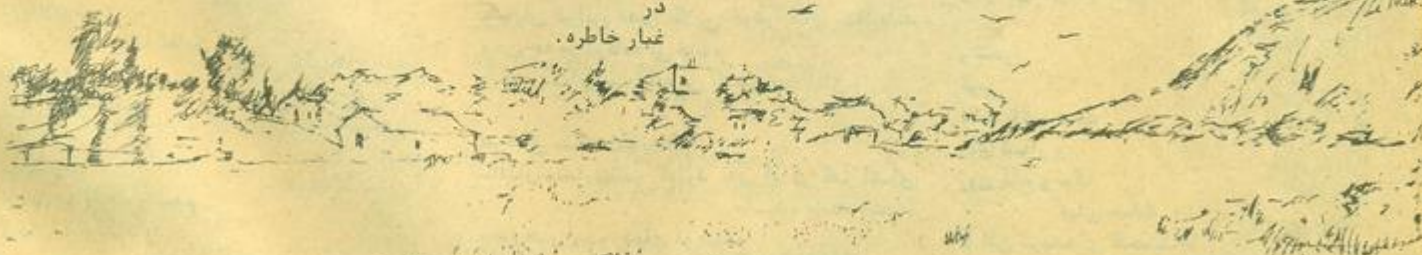 در
غبار خاطره.